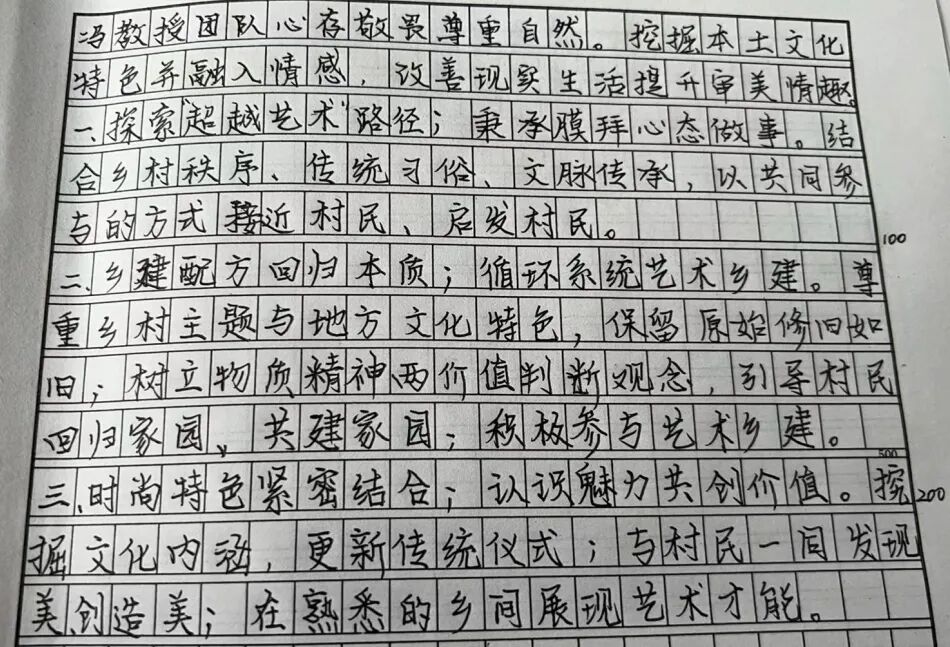 冯教授团队心存敬畏尊重自然。挖掘本土文化
特色并融入情感，改善现实生活提升审美情趣。
一、探索"超越艺术"路径；秉承膜拜心态做事。结
合乡村秩序、传统习俗、文脉传承，以共同参
与的方式接近村民、启发村民。
100
二、乡建配方回归本质；循环系统艺术乡建。尊
重乡村主题与地方文化特色，保留原始修旧如
旧；树立物质精神两价值判断观念，引导村民
回归家园、共建家园；积极参与艺术乡建。
500
三、时尚特色紧密结合；认识魅力共创价值。挖
200
掘文化内涵，更新传统仪式；与村民一同发现
美、创造美；在熟悉的乡间展现艺术才能。